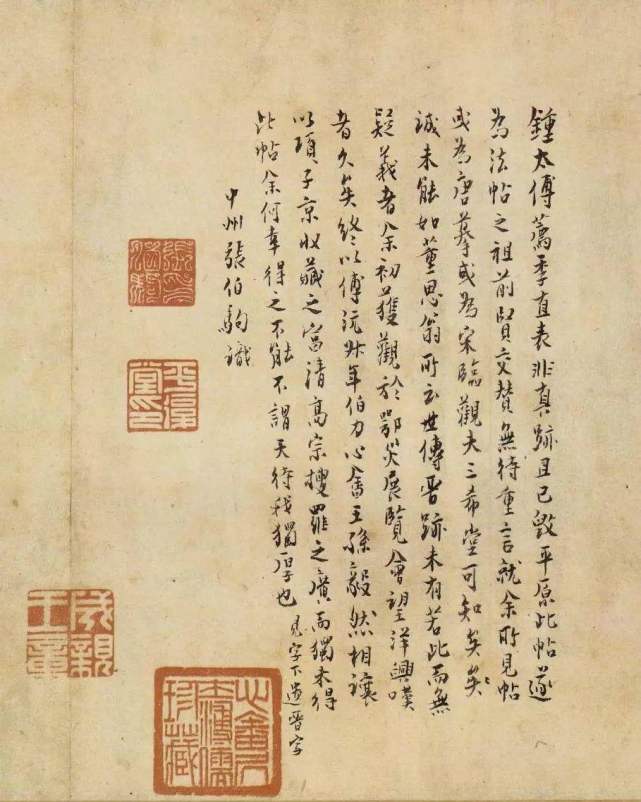 鍾太傅薦季直表非真跡且已毀平原此帖遂
為法帖之祖前賢交贊無待重言就余所見帖
或為唐摹或為宋臨觀夫三希堂可知矣矣
誠未能如董思翁所云世傳晉跡未有若此而無
疑義者余初獲觀於鄂災展覽會望洋興嘆
者久矣終以傅沅叔年伯力心畬王孫毅然相讓
以項子京收藏之富清高宗搜羅之廣而獨未得
此帖余何幸得之不能不謂天待我獨厚也 見字下遺晉字
中州張伯駒識
平復堂印
心畬
溥儒
珍藏
成親
王章